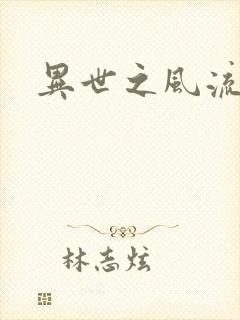 異世之風流
林志炫